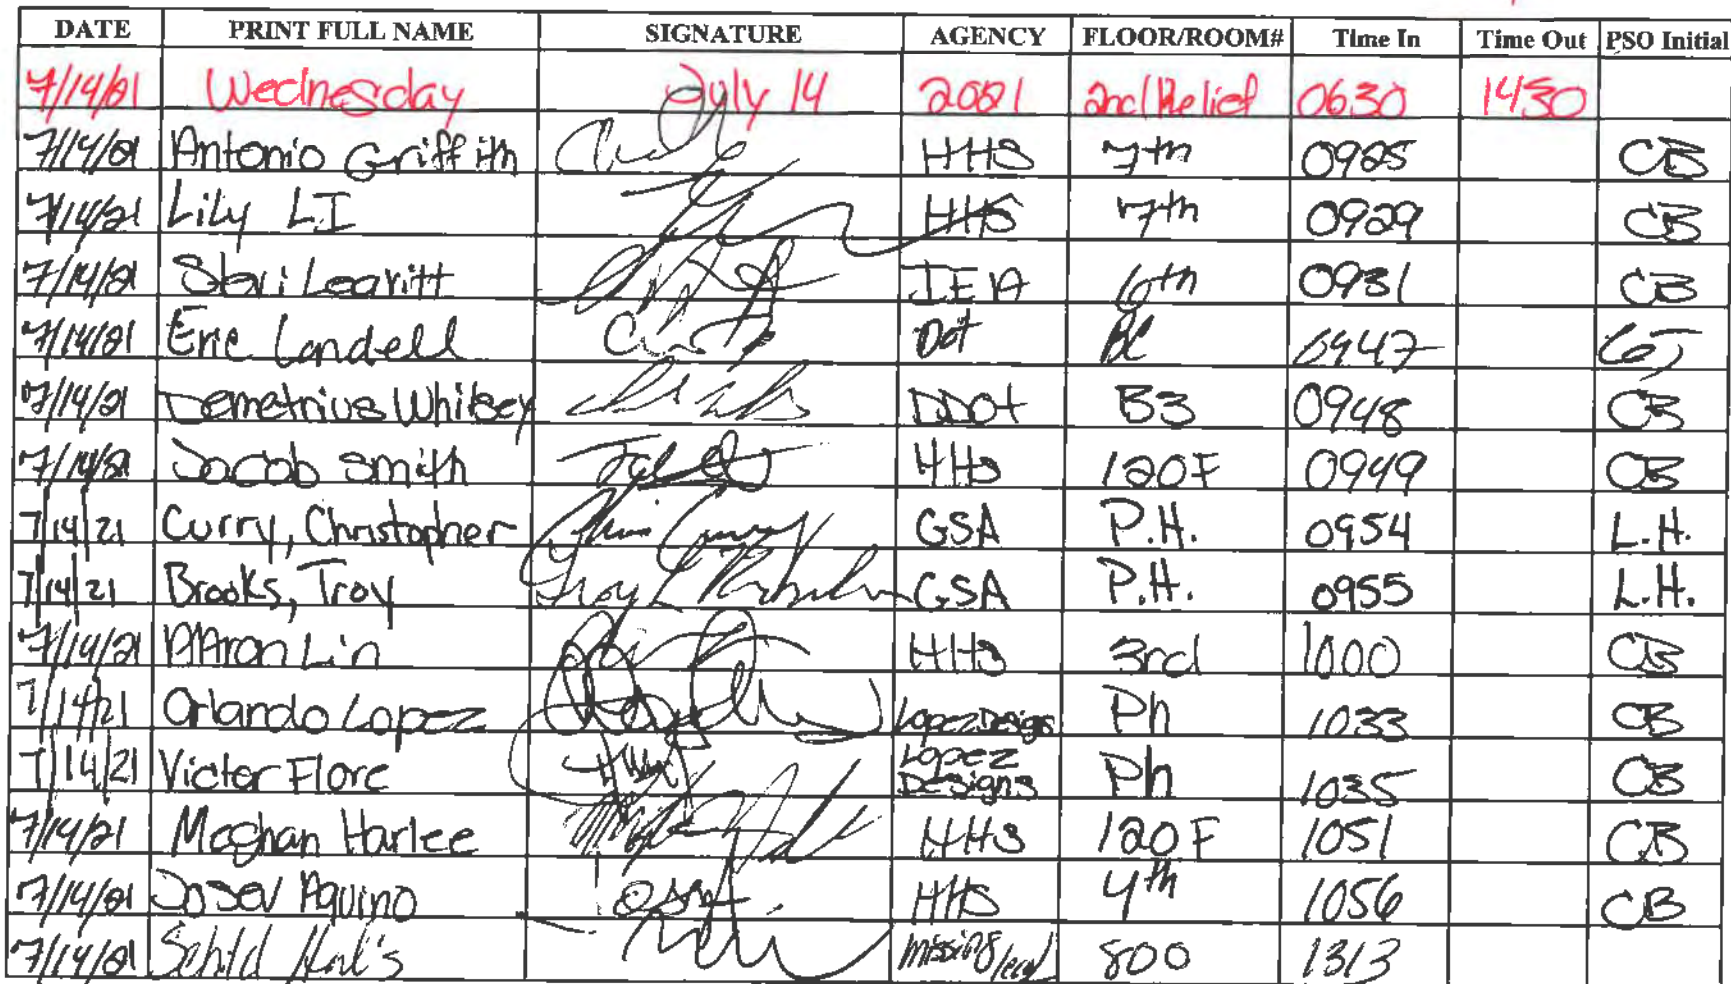 DATE PRINT FULL NAME SIGNATURE AGENCY FLOOR/ROOM# Time In Time Out PSO Initial
7/14/21 Wednesday July 14 2021 2nd Relief 0630 1430
7/14/21 Antonio Griffith HHS 7th 0925 CB
7/14/21 Lily LI HHS 7th 0929 CB
7/14/21 Leavitt 6th 0931 CB
7/14/21 Eric Landell Dot 0947
7/14/21 Demetrius Whitsey DDot B3 0948 CB
7/14/21 Jacob Smith HHS 120F 0949 CB
7/14/21 Curry, Christopher GSA P.H. 0954 L.H.
7/14/21 Brooks, Troy GSA P.H. 0955 L.H.
7/14/21 AAron Lin HHS 3rd 1000 CB
7/14/21 Orlando Lopez Lopez Design Ph 1033 CB
7/14/21 Victor Flore Lopez Designs Ph 1035 CB
7/14/21 Meghan Harlee HHS 120F 1051 CB
7/14/21 Aquino HHS 4th 1056 CB
7/14/21 800 1313